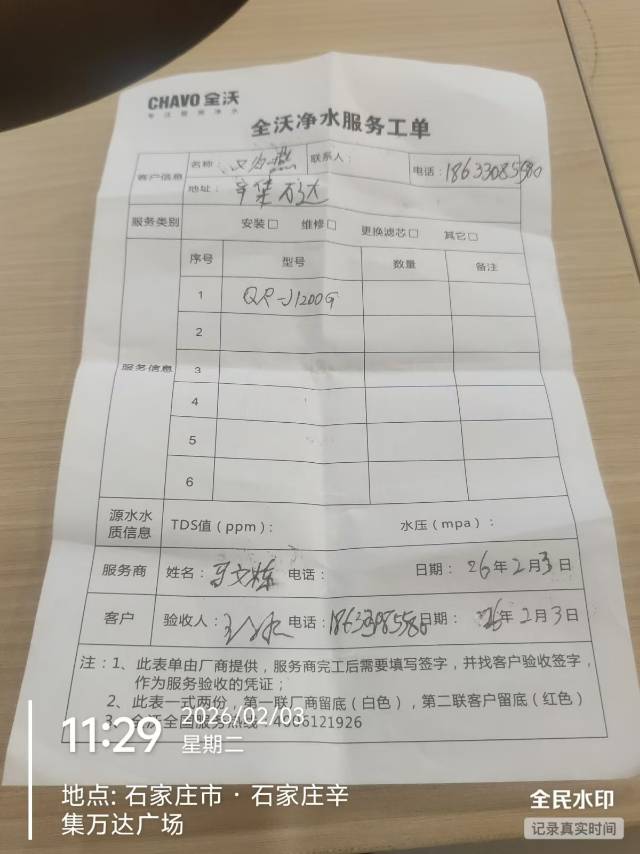 CHAVO 全沃
专注健康净水
全沃净水服务工单
客户信息 名称： 联系人： 电话：18633085580
地址：辛集万达
服务类别 安装□ 维修□ 更换滤芯□ 其它□
服务信息 序号 型号 数量 备注
1 QR-J1200G
2
3
4
5
6
源水水质信息 TDS值（ppm）： 水压（mpa）：
服务商 姓名： 电话： 日期：26年2月3日
客户 验收人： 电话：18633085580 日期：26年2月3日
注：1、此表单由厂商提供，服务商完工后需要填写签字，并找客户验收签字，
作为服务验收的凭证；
2、此表一式两份，第一联厂商留底（白色），第二联客户留底（红色）
3、全沃全国服务热线：4006121926
11:29
2026/02/03
星期二
地点: 石家庄市 · 石家庄辛
集万达广场
全民水印
记录真实时间